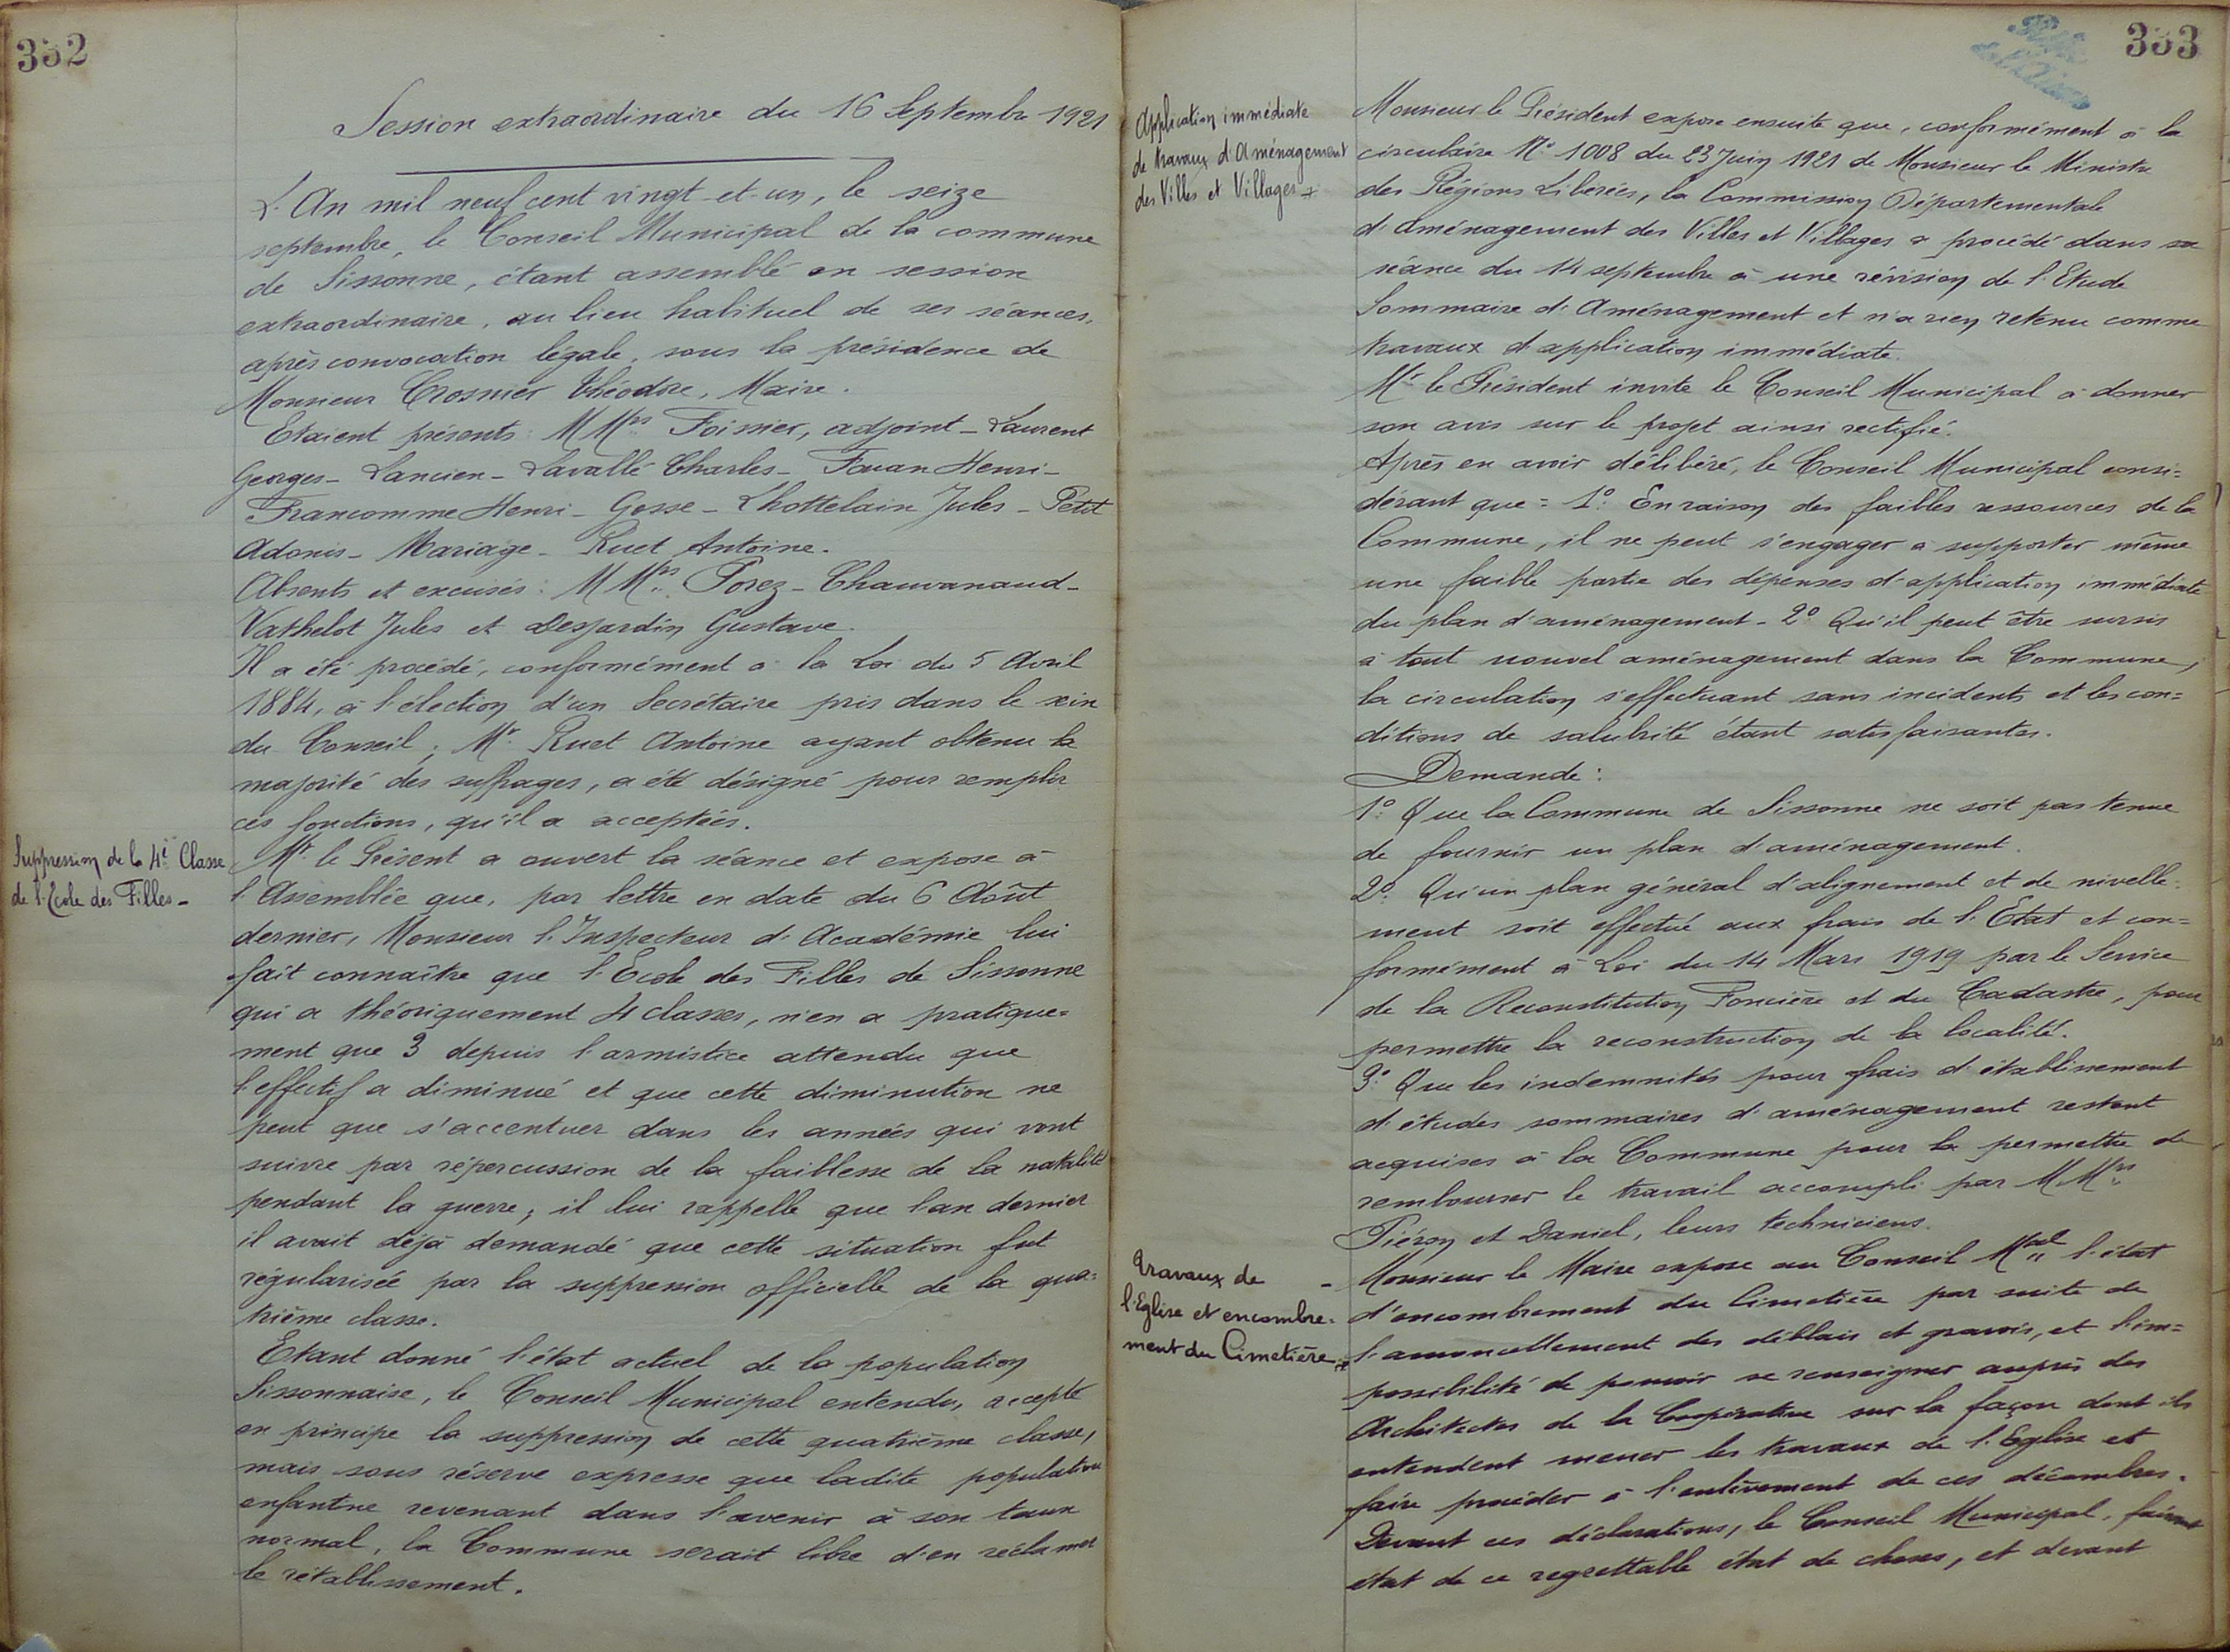 332
Session extraordinaire du 16 Septembre 1921
L'An mil neuf cent vingt-et-un, le seize
septembre, le Conseil Municipal de la commune
de Sissonne, étant assemblé en session
extraordinaire, au lieu habituel de ses séances,
après convocation légale, sous la présidence de
Monsieur Crosnier Théodore, Maire.
Etaient présents: MMrs Foissier, adjoint - Laurent
Georges - Lancien - Lavallé Charles - Fouan Henri -
Francomme Henri - Gosse - Lhottelain Jules - Pétit
Adonis - Mariage - Ruet Antoine.
Absents et excusés: MMrs Porez - Chauvanaud -
Vathelot Jules et Desjardin Gustave.
Il a été procédé, conformément à la Loi du 5 Avril
1884, à l'élection d'un Secrétaire pris dans le sein
du Conseil; Mr. Ruet Antoine ayant obtenu la
majorité des suffrages, a été désigné pour remplir
ces fonctions, qu'il a acceptées.
Suppression de la 4e Classe
de l'Ecole des Filles -
Mr. le Présent a ouvert la séance et expose à
l'Assemblée que, par lettre en date du 6 Août
dernier, Monsieur l'Inspecteur d'Académie lui
fait connaître que l'Ecole des Filles de Sissonne
qui a théoriquement 4 classes, n'en a pratique=
ment que 3 depuis l'armistice attendu que
l'effectif a diminué et que cette diminution ne
peut que s'accentuer dans les années qui vont
suivre par répercussion de la faiblesse de la natalité
pendant la guerre; il lui rappelle que l'an dernier
il avait déjà demandé que cette situation fut
régularisée par la suppression officielle de la qua=
trième classe.
Etant donné l'état actuel de la population
Sissonnaise, le Conseil Municipal entendu, accepte
en principe la suppression de cette quatrième classe,
mais sous réserve expresse que ladite population
enfantine revenant dans l'avenir à son taux
normal, la Commune serait libre d'en réclamer
le rétablissement.
333
Application immédiate
de travaux d'Aménagement
des Villes et Villages +
Monsieur le Président expose ensuite que, conformément à la
circulaire No 1008 du 23 Juin 1921 de Monsieur le Ministre
des Régions Libérées, la Commission Départementale
d'Aménagement des Villes et Villages a procédé dans sa
séance du 14 septembre à une révision de l'Etude
Sommaire d'Aménagement et n'a rien retenu comme
travaux d'application immédiate.
Mr le Président invite le Conseil Municipal à donner
son avis sur le projet ainsi rectifié.
Après en avoir délibéré, le Conseil Municipal consi=
dérant que = 1o: En raison des faibles ressources de la
Commune, il ne peut s'engager à supporter même
une faible partie des dépenses d'application immédiate
du plan d'aménagement - 2o Qu'il peut être sursis
à tout nouvel aménagement dans la Commune,
la circulation s'effectuant sans incidents et les con=
ditions de salubrité étant satisfaisantes.
Demande:
1o: Que la Commune de Sissonne ne soit pas tenue
de fournir un plan d'aménagement.
2o: Qu'un plan général d'alignement et de nivelle=
ment soit effectué aux frais de l'Etat et con=
formément à Loi du 14 Mars 1919 par le Service
de la Reconstitution Foncière et du Cadastre, pour
permettre la reconstruction de la localité.
3o: Que les indemnités pour frais d'établissement
d'études sommaires d'aménagement restent
acquises à la Commune pour la permettre de
rembourser le travail accompli par MMrs
Piéron et Daniel, leurs techniciens.
Travaux de
l'Eglise et encombre=
ment du Cimetière
- Monsieur le Maire expose au Conseil Mpal l'état
d'encombrement du Cimetière par suite de
l'amoncellement des déblais et gravois, et l'im=
possibilité de pouvoir se renseigner auprès des
Architectes de la Coopérative sur la façon dont ils
entendent mener les travaux de l'Eglise et
faire procéder à l'enlèvement de ces décombres.
Devant ces déclarations, le Conseil Municipal, faisant
état de ce regrettable état de choses, et devant